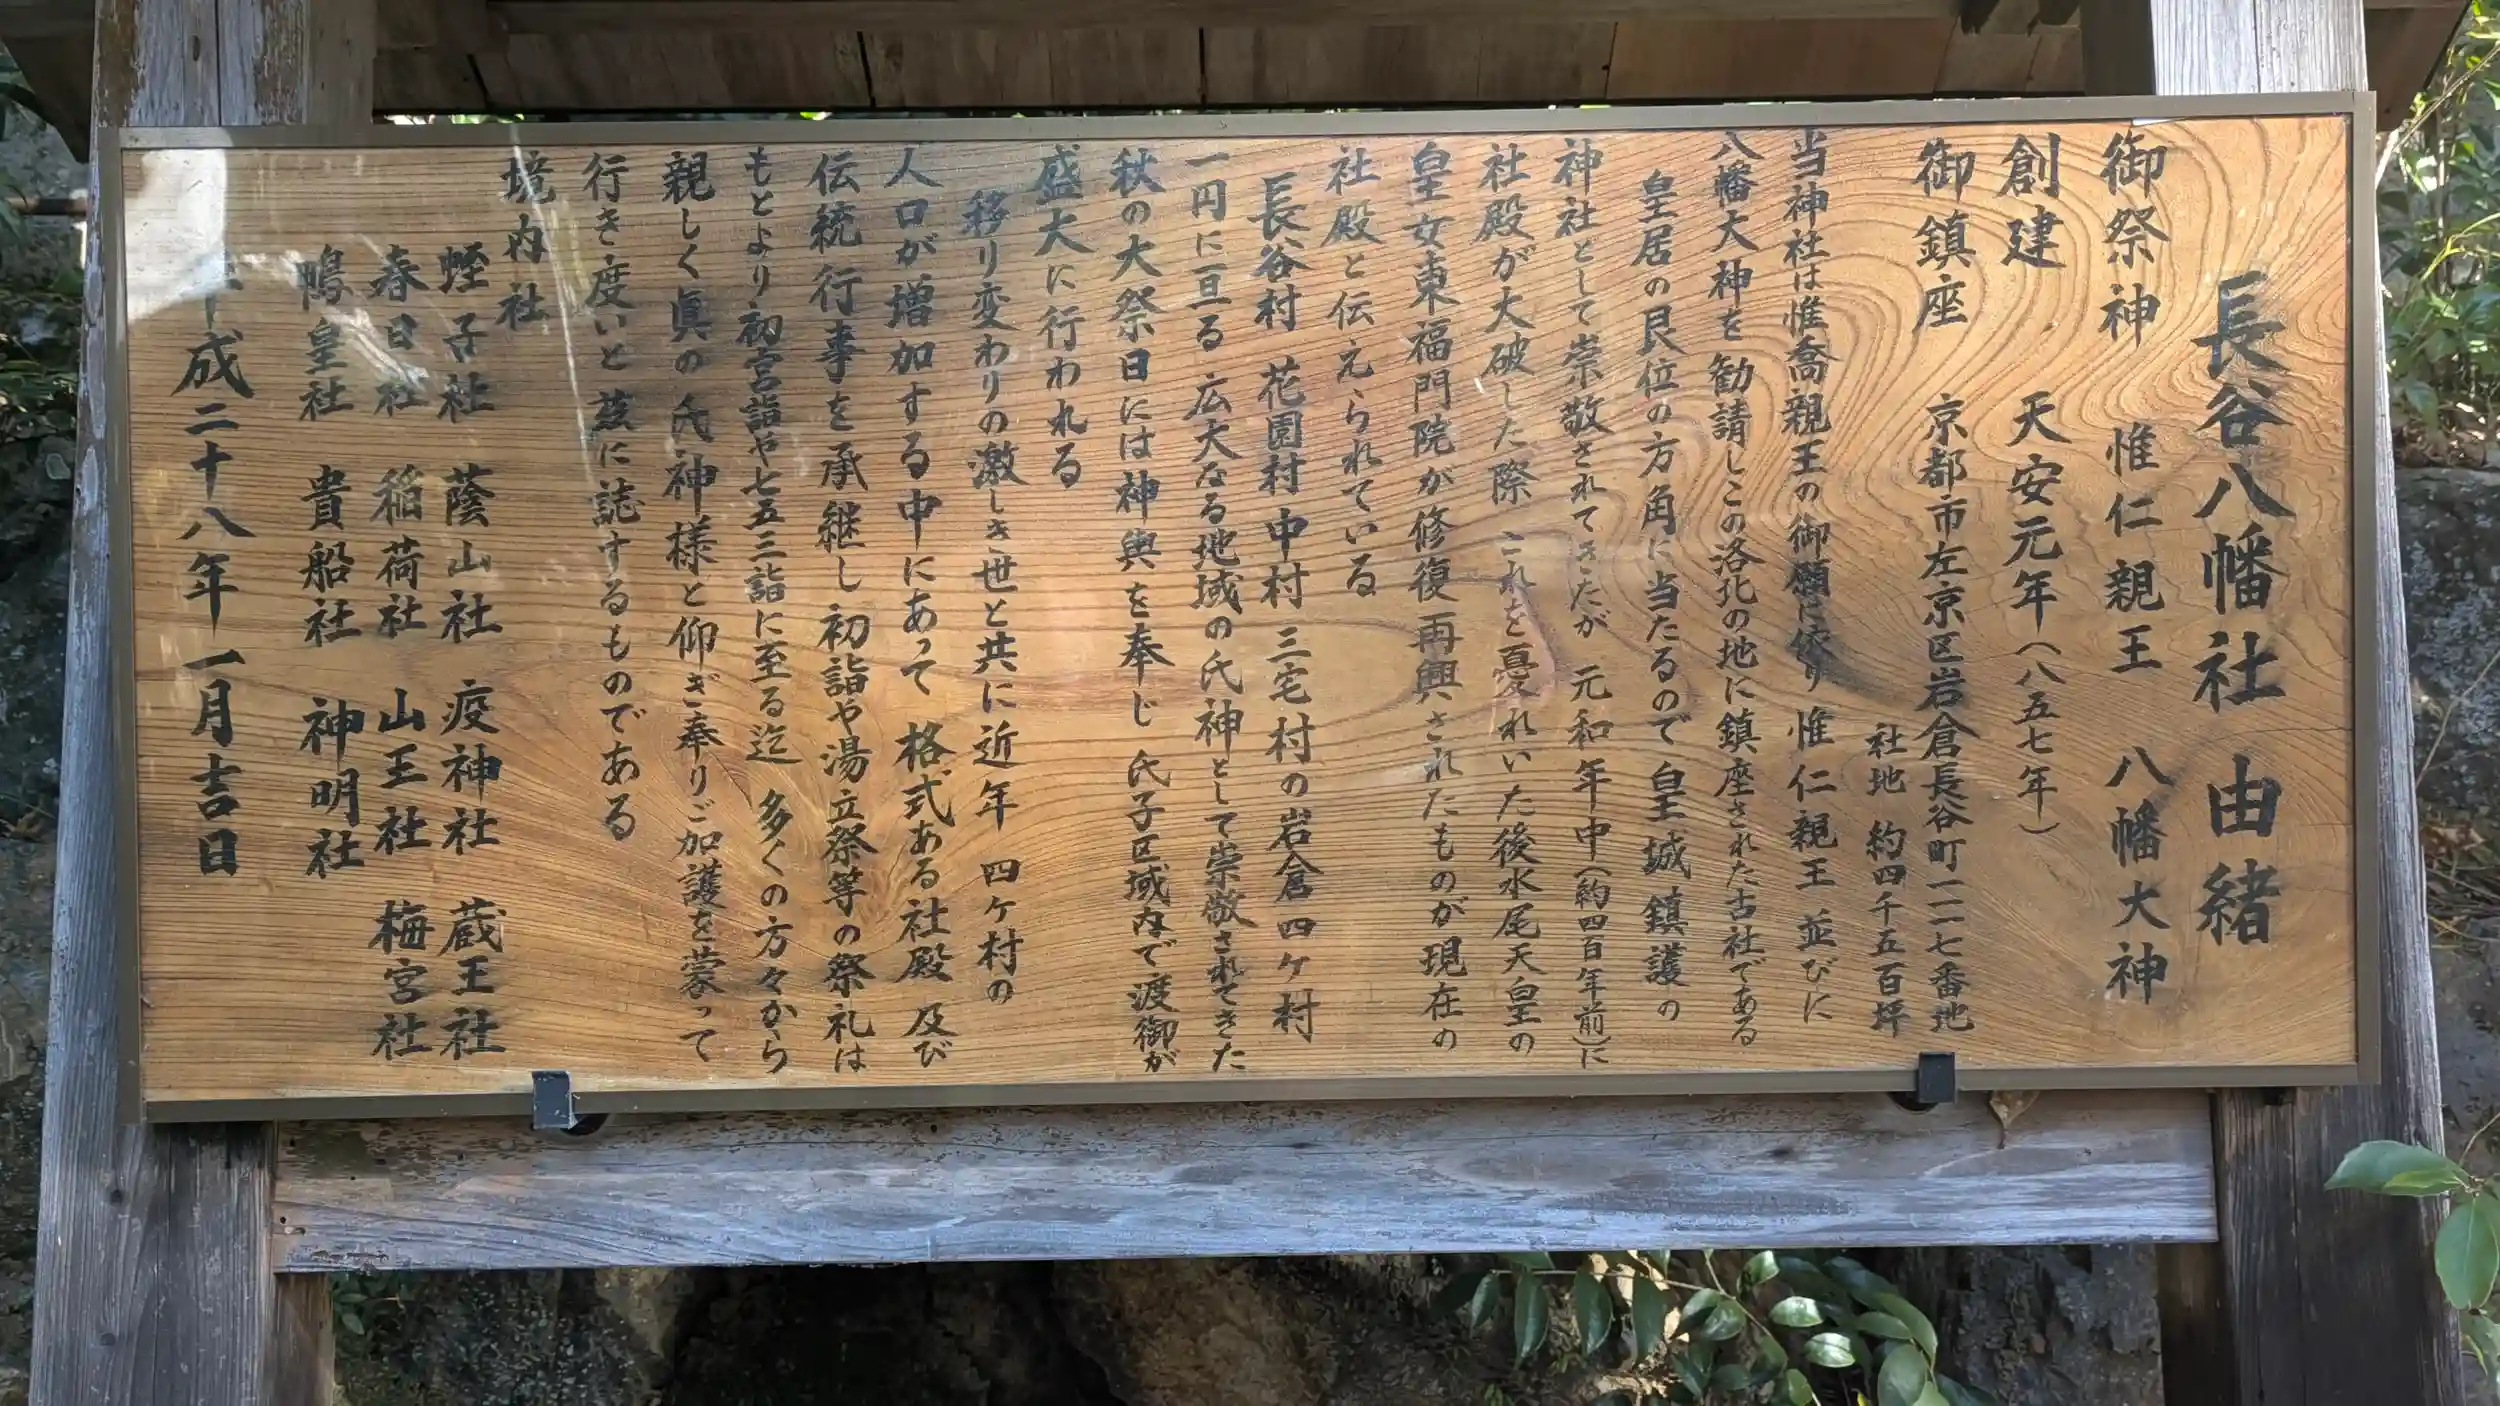 長谷八幡社 由緒
御祭神 惟仁親王 八幡大神
創建 天安元年(八五七年)
御鎮座 京都市左京区岩倉長谷町一一二七番地
社地 約四千五百坪
当神社は惟喬親王の御願に依り 惟仁親王 並びに
八幡大神を勧請しこの洛北の地に鎮座された古社である
皇居の艮位の方角に当たるので 皇城鎮護の
神社として崇敬されてきたが 元和年中(約四百年前)に
社殿が大破した際 これを憂えれいた後水尾天皇の
皇女東福門院が修復再興されたものが現在の
社殿と伝えられている
長谷村 花園村 中村 三宅村の岩倉四ケ村
一円に亘る 広大なる地域の氏神として崇敬されてきた
秋の大祭日には神輿を奉じ 氏子区域内で渡御が
盛大に行われる
移り変わりの激しき世と共に近年 四ケ村の
人口が増加する中にあって 格式ある社殿 及び
伝統行事を承継し 初詣や湯立祭等の祭礼は
もとより初宮詣や七五三詣に至る迄 多くの方々から
親しく眞の氏神様と仰ぎ奉りご加護を蒙って
行き度いと茲に誌するものである
境内社
蛭子社 蔭山社 疫神社 蔵王社
春日社 稲荷社 山王社 梅宮社
鴨皇社 貴船社 神明社
平成二十八年 一月吉日